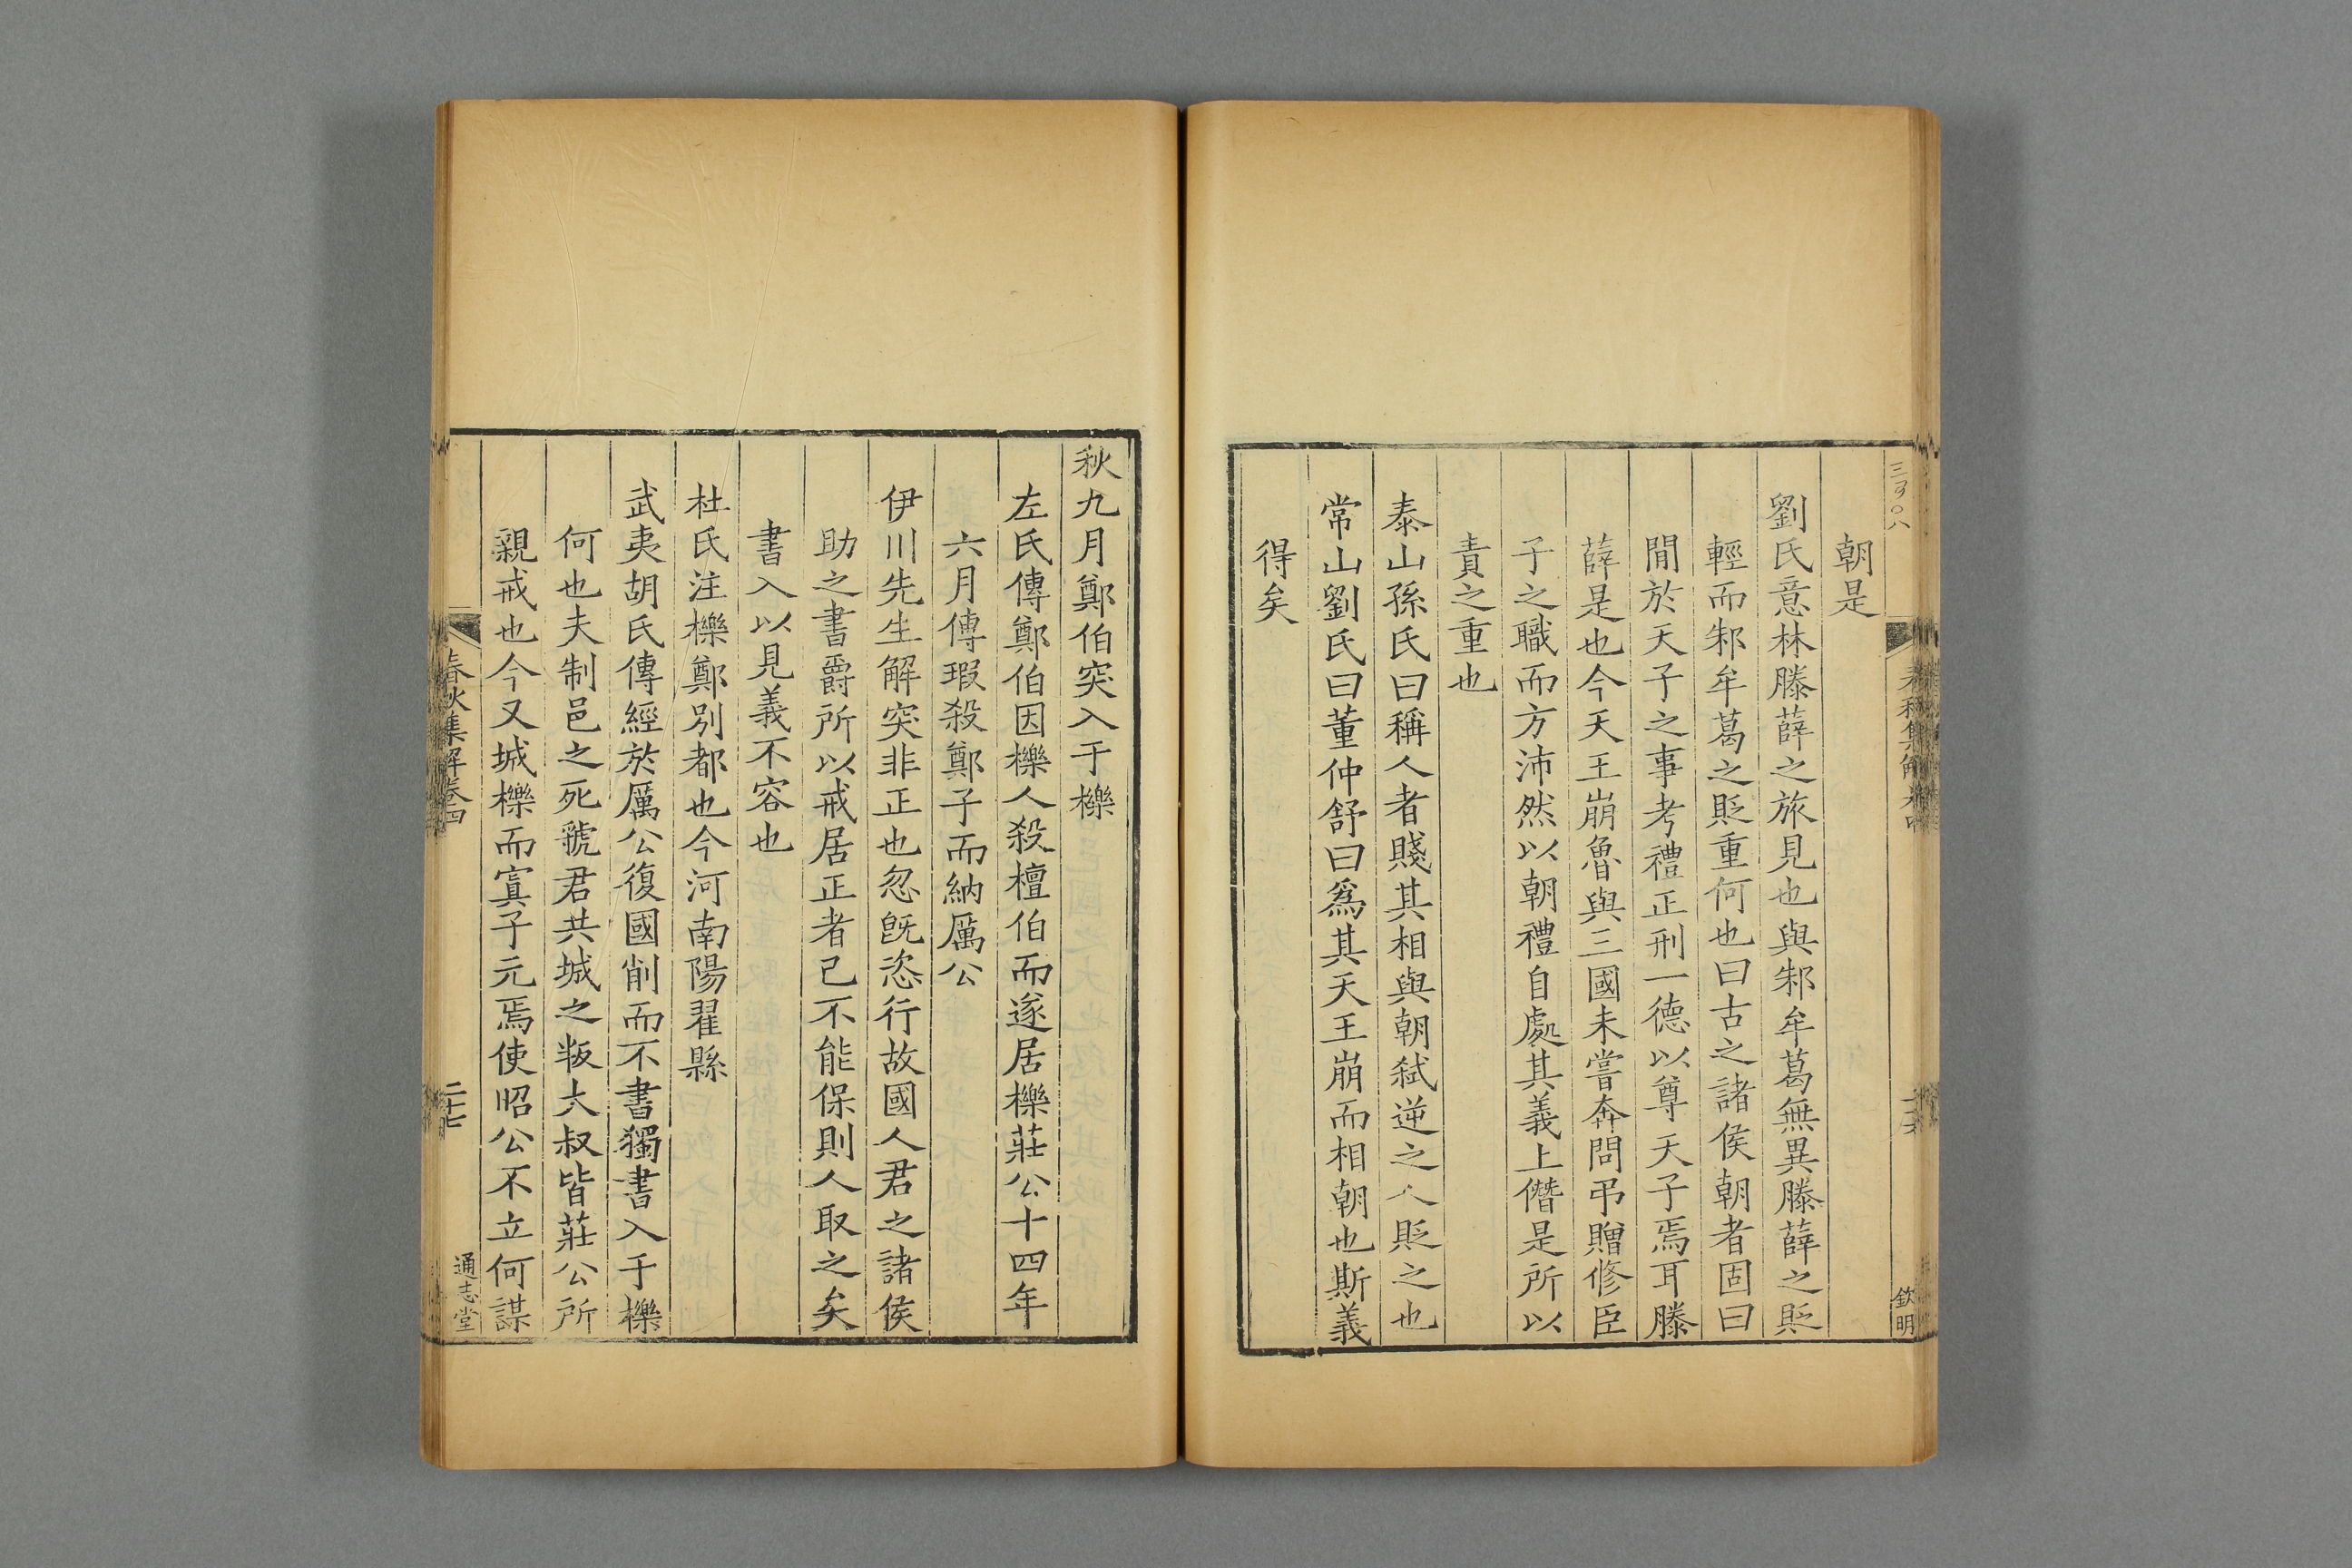 三可〇八
朝是
劉氏意林滕薛之旅見也與邾牟葛無異滕薛之貶
輕而邾牟葛之貶重何也曰古之諸侯朝者固曰
間於天子之事考禮正刑一德以尊天子焉耳滕
薛是也今天王崩魯與三國未嘗奔問弔贈修臣
子之職而方沛然以朝禮自處其義上僭是所以
責之重也
泰山孫氏曰稱人者賤其相與朝弑逆之人貶之也
常山劉氏曰董仲舒曰爲其天王崩而相朝也斯義
得矣
欽明
秋九月鄭伯突入于櫟
左氏傳鄭伯因櫟人殺檀伯而遂居櫟莊公十四年
六月傅瑕殺鄭子而納厲公
伊川先生解突非正也忽旣恣行故國人君之諸侯
助之書爵所以戒居正者己不能保則人取之矣
書入以見義不容也
杜氏注櫟鄭別都也今河南陽翟縣
武夷胡氏傳經於厲公復國削而不書獨書入于櫟
何也夫制邑之死虢君共城之叛太叔皆莊公所
親戒也今又城櫟而寘子元焉使昭公不立何謀
春秋集解卷四
二十七
通志堂